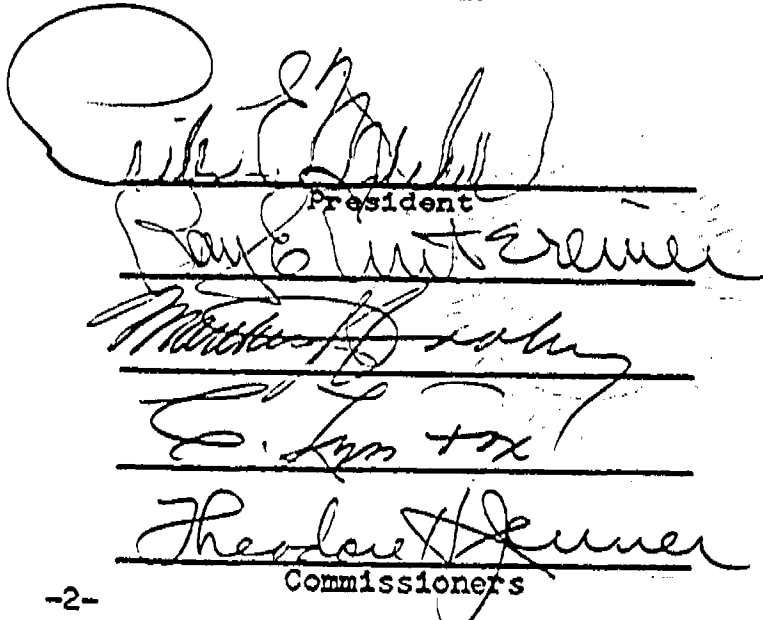 President
Ray E Untereiner
C. Lyn Fox
Theodore H Jenner
Commissioners
-2-